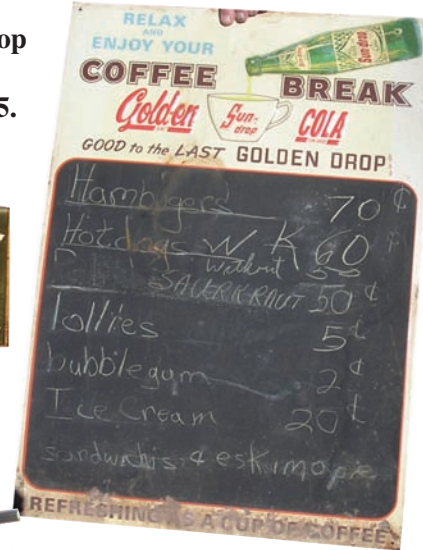 op
5.
RELAX
AND
ENJOY YOUR
COFFEE BREAK
Golden Sun-drop COLA
GOOD to the LAST GOLDEN DROP
Sun-drop
Hambrgers 70¢
Hotdogs W K 60¢
Without 50
SAUERKRAUT 50¢
lollies 5¢
bubblegum 2¢
Ice Cream 20¢
sandwichis & eskimo pie
REFRESHING AS A CUP OF COFFEE